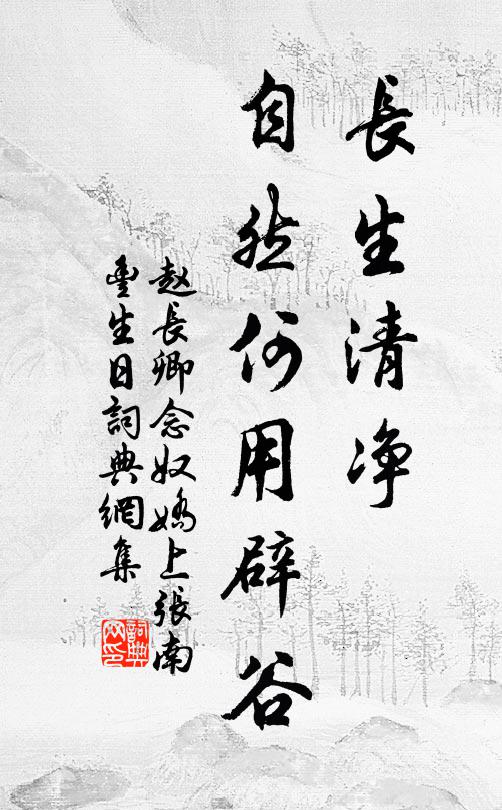 長生清净
自然何用辟谷
赵長卿念奴嬌上張南
豐生日詞典網集
詞典
网印